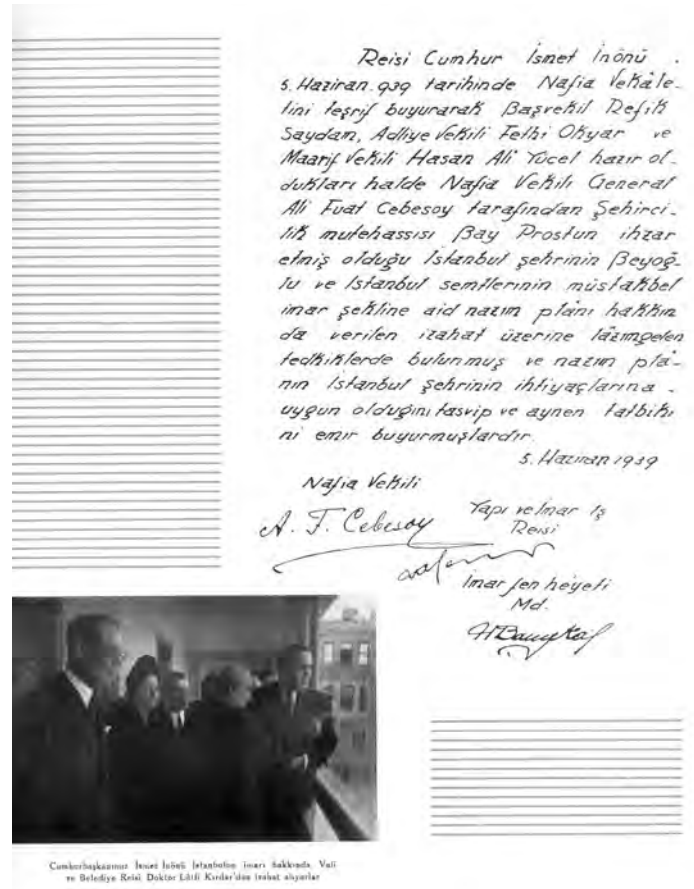 Reisi Cumhur İsmet İnönü .
5. Haziran.939 tarihinde Nafia Vekâle-
tini teşrif buyurarak Başvekil Refik
Saydam, Adliye Vekili Fethi Okyar ve
Maarif Vekili Hasan Ali Yücel hazır ol-
dukları halde Nafia Vekili General
Ali Fuat Cebesoy tarafından Şehirci-
lik mutehassısı Bay Prostun ihzar
etmiş olduğu İstanbul şehrinin Beyoğ-
lu ve İstanbul semtlerinin müstakbel
imar şekline aid nazım plânı hakkın
da verilen izahat üzerine lâzımgelen
tedkiklerde bulunmuş ve nazım plâ-
nın İstanbul şehrinin ihtiyaçlarına -
uygun olduğını tasvip ve aynen tatbiki
ni emir buyurmuşlardır.
5. Haziran 1939
Nafia Vekili
A. F. Cebesoy
Yapı ve İmar İş
Reisi
İmar fen heyeti
Md.
Cumhurbaşkanımız İsmet İnönü İstanbulun imarı hakkında Vali
ve Belediye Reisi Doktor Lûtfi Kırdar'dan izahat alıyorlar